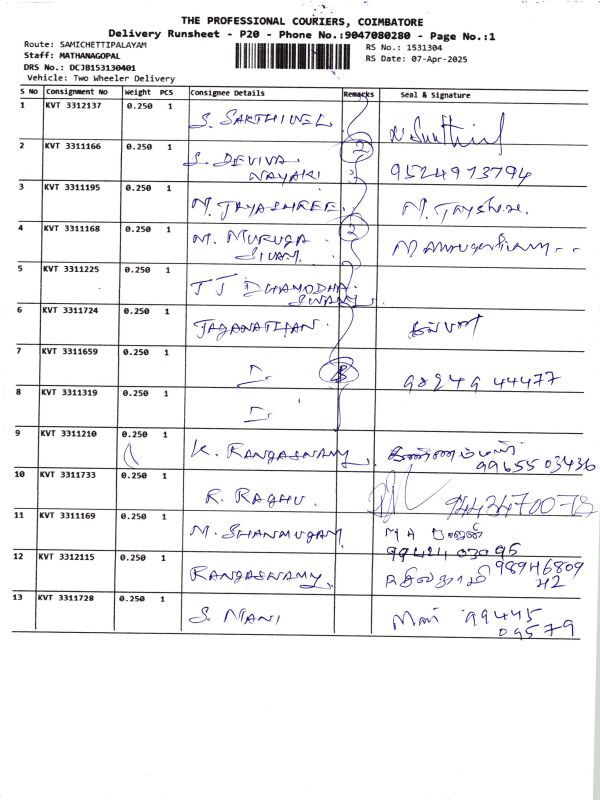 THE PROFESSIONAL COURIERS, COIMBATORE
Delivery Runsheet - P20 - Phone No.:9047080280 - Page No.:1
Route: SAMICHETTIPALAYAM RS No.: 1531304
Staff: MATHANAGOPAL RS Date: 07-Apr-2025
DRS No.: DCJB153130401
Vehicle: Two Wheeler Delivery
S No Consignment No Weight PCS Consignee Details Remarks Seal & Signature
1 KVT 3312137 0.250 1 S. SAKTHIVEL
2 KVT 3311166 0.250 1 S. DEVIVA 2
NAYAKI 9524973794
3 KVT 3311195 0.250 1 M. JAYASHREE M. Jayshree
4 KVT 3311168 0.250 1 M. MURUGA 2
SIVAM
5 KVT 3311225 0.250 1 T T DHAMODHA
SWAMY
6 KVT 3311724 0.250 1 JAGANATHAN
7 KVT 3311659 0.250 1 98249 44477
8 KVT 3311319 0.250 1
9 KVT 3311210 0.250 1 K. RANGASWAMY
99655 03436
10 KVT 3311733 0.250 1 R. RAGHU 9443470078
11 KVT 3311169 0.250 1 M. SHANMUGAM M A
99424 03095
12 KVT 3312115 0.250 1 RANGASWAMY 98946809
42
13 KVT 3311728 0.250 1 S. MANI Mani 99445
09579